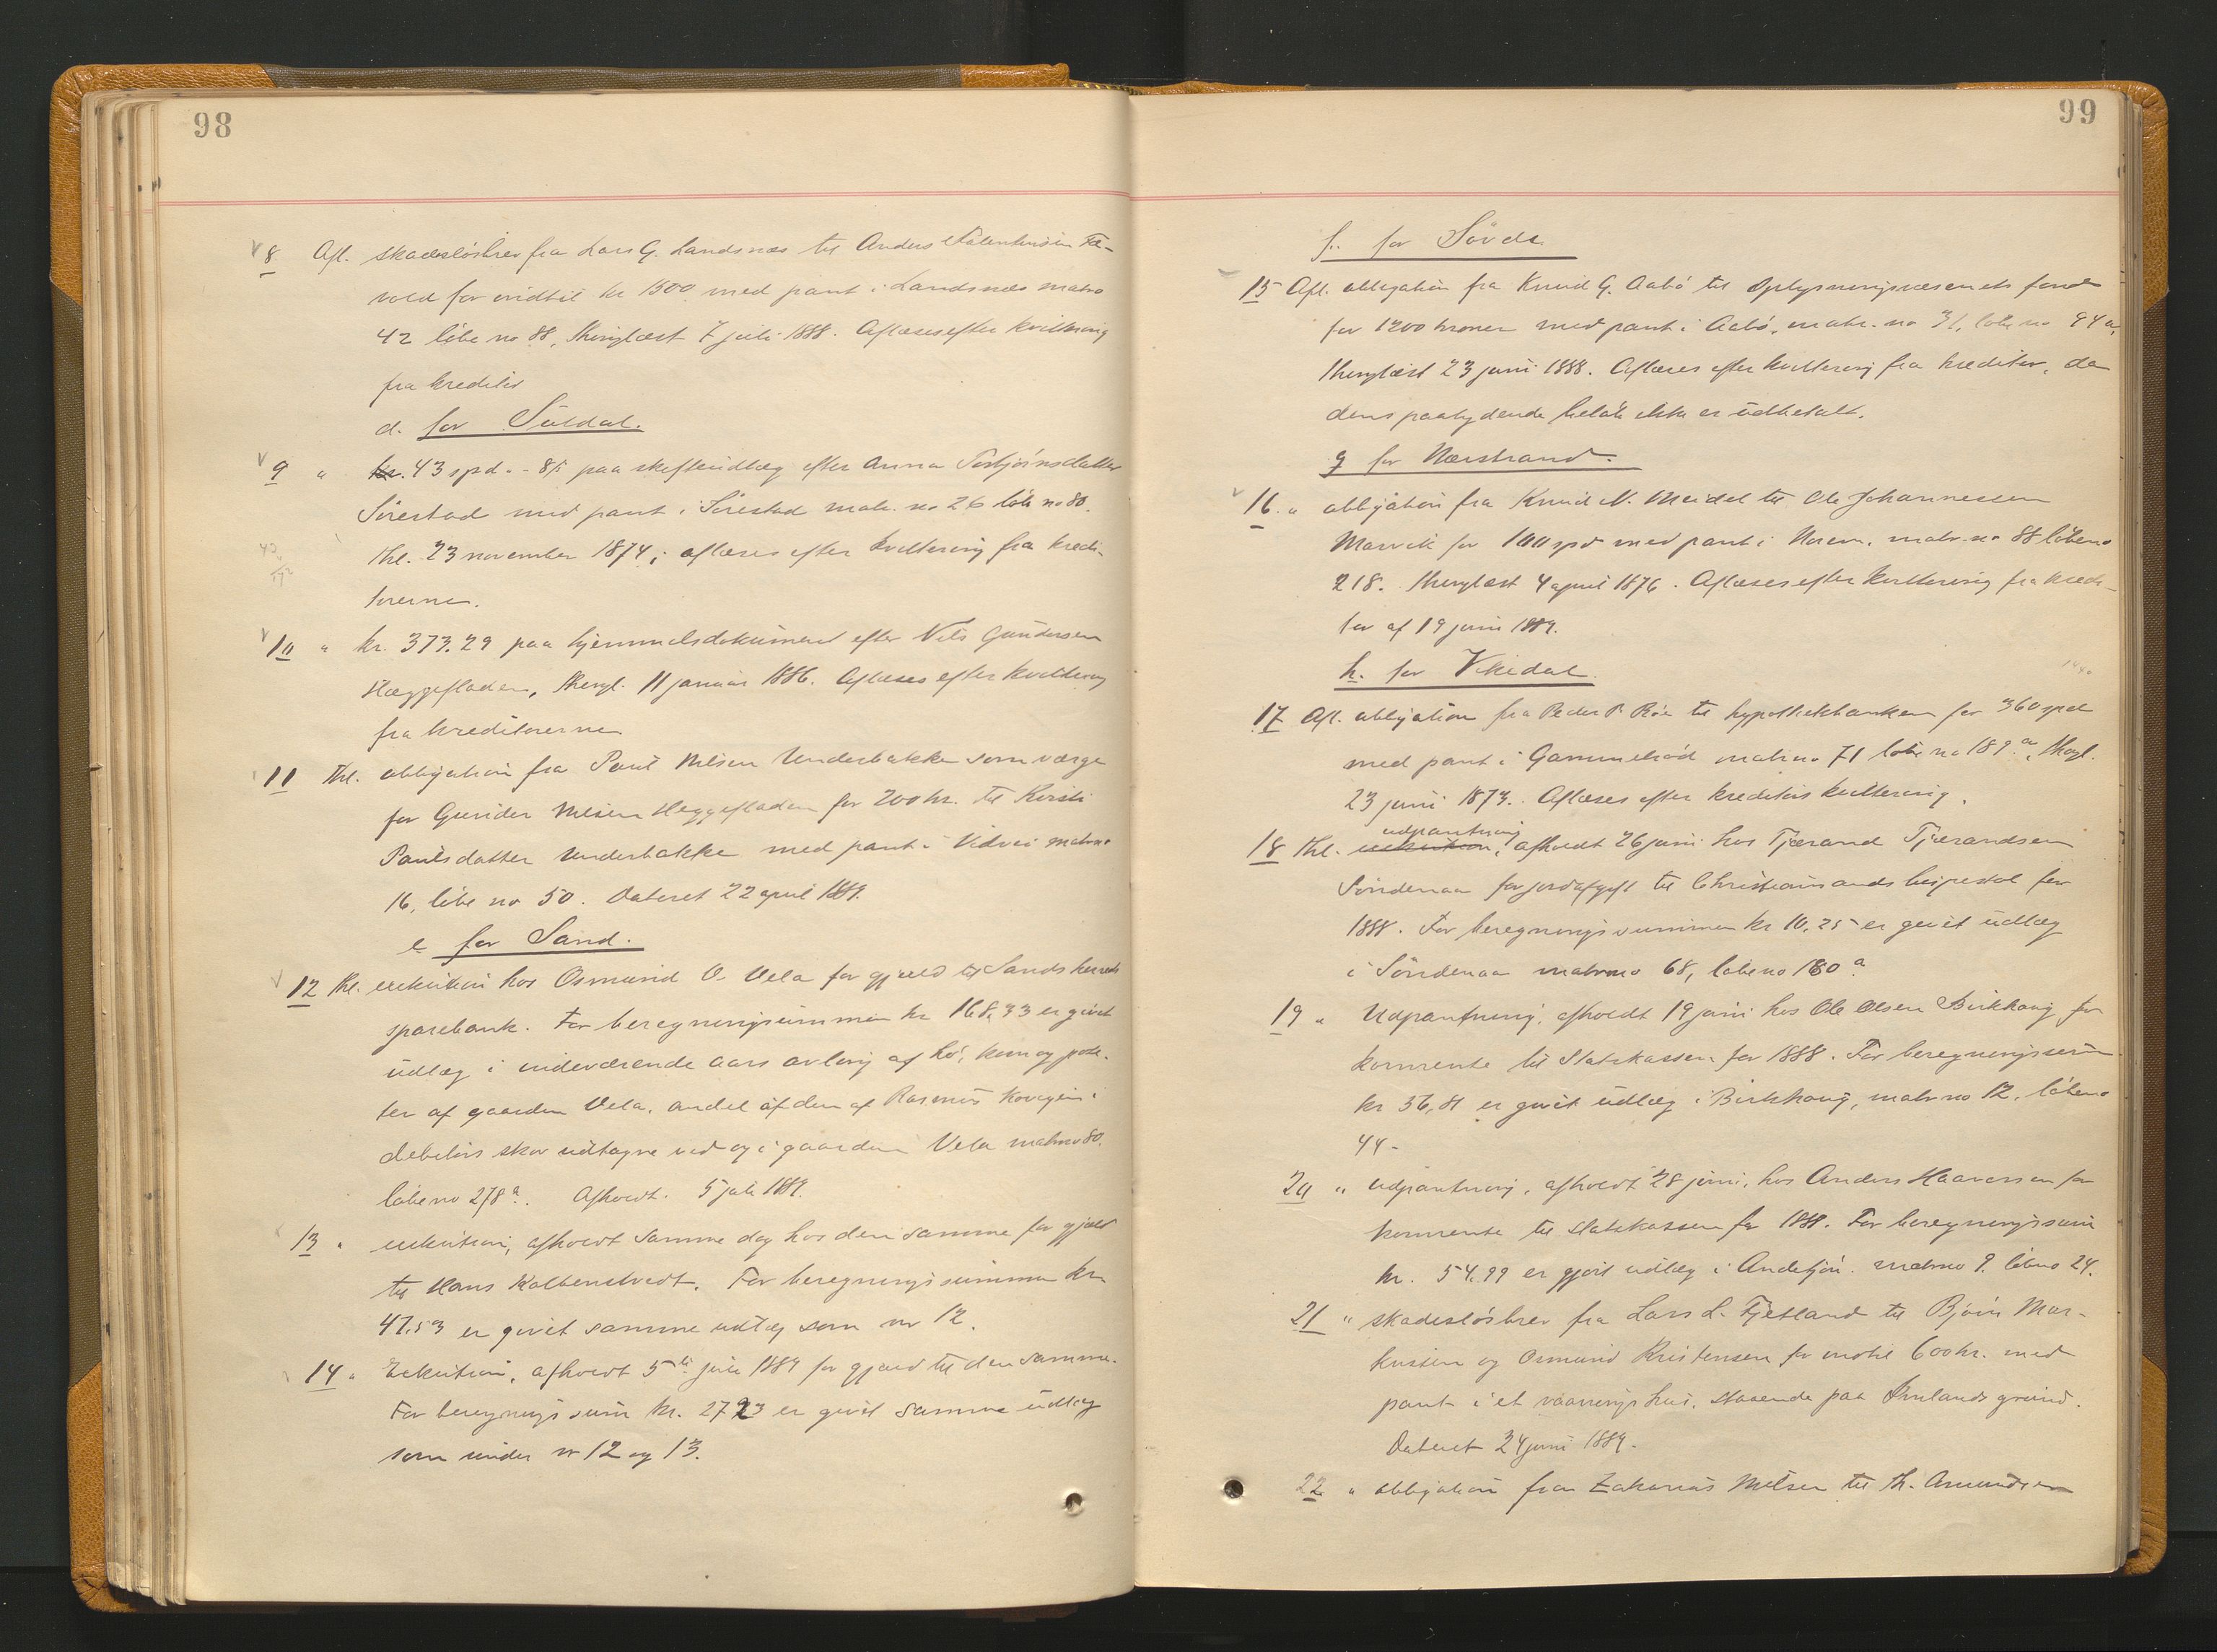 98
8 Afl. skadesløsbrev fra Lars G. Landsnæs til Anders
vold for indtil kr 1500 med pant i Landsnæs matrno
42 löbe no 88, thinglæst 7 juli 1888. Aflæses efter kvittering
fra kreditor
d. for Suldal.
9 " kr. 43 spd. - 8 β paa skifteudlæg efter Anna Torbjörnsdatter
Sörestad med pant i Sörestad matr. no 26 löbe no 80.
thl. 23 november 1874; aflæses efter kvittering fra kredi-
torerne.
10 " kr. 373.29 paa hjemmelsdokument efter Nils Gundersen
Hæggefladen, thingl. 11 januar 1886. Aflæses efter kvittering
fra kreditorerne
11 thl. obligation fra Paul Nilsen Underbakke som værge
for Gunder Nilsen Heggefladen for 200 kr. til Kirsti
Paulsdatter Underbakke med pant i matrno
16, löbe no 50. Dateret 22 april 1889.
e for Sand.
12 thl. exekution hos Osmund O. Vela for gjæld til Sands herreds
sparebank. For beregningssummen kr 168,33 er givet
udlæg i indeværende aars avling af hö, korn og pote-
ter af gaarden Vela, andel af den af Rasmus i
debitors skov udtagne ved og i gaarden Vela matrno 80.
löbeno 278 a. Afholdt 5 juli 1889.
13 " exekution, afholdt samme dag hos den samme for gjæld
til Hans Kolbenstvedt. For beregningssummen kr.
47.53 er givet samme udlæg som nr 12.
14 " Exekution, afholdt 5te juli 1889 for gjæld til den samme.
For beregningssum kr. 27 23 er givet samme udlæg
som under nr 12 og 13.
99
f. for Sövde
15 Afl. obligation fra Knud G. Aabö til Oplysningsvæsenets fond
for 1200 kroner med pant i Aabö, matr. no 31, löbe no 94 a,
thinglæst 23 juni 1888. Aflæses efter kvittering fra kreditor, da
dens paalydende belöb ikke er udbetalt.
g for Nærstrand.
16. " obligation fra Knud N. Meidel til Ole Johannessen
Marvik for 100 spd med pant i matr. no 88 löbeno
218. thinglæst 4 april 1876. Aflæses efter kvittering fra kredi-
tor af 19 juni 1889.
h. for Vikedal
17 Afl. obligation fra Peder P. Röe til hypothekbanken for 360 spd
med pant i Gammelröd matrno 71 löbe no 189 a, thgl.
23 juni 1873. Aflæses efter kreditors kvittering.
udpantning
18 thl. exekution, afholdt 26 juni hos Tjærand Tjærandsen
Söndenaa for jordafgift til Christiansands bispestol for
1888. For beregningssummen kr 10,25 er givet udlæg
i Söndenaa matrno 68, löbeno 180 a.
19 " Udpantning, afholdt 19 juni hos Ole Olsen Birkhaug, for
kornrente til Statskassen for 1888. For beregningssum
kr 36,81 er givet udlæg i Birkhaug, matr no 12, löbeno
44.
20 " udpantning, afholdt 28 juni, hos Anders Haaversen for
kornrente til statskassen for 1888. For beregningssum
kr. 54.99 er gjort udlæg i matrno 9. löbno 24.
21 " skadeslösbrev fra Lars L. Fjetland til Björn Mar-
kussen og Osmund Kristensen for indtil 600 kr. med
pant i et vaaningshus, staaende paa Ömlands grund.
Dateret 24 juni 1889.
22 " obligation fra Zakarias Nilsen til Th. Amundsen